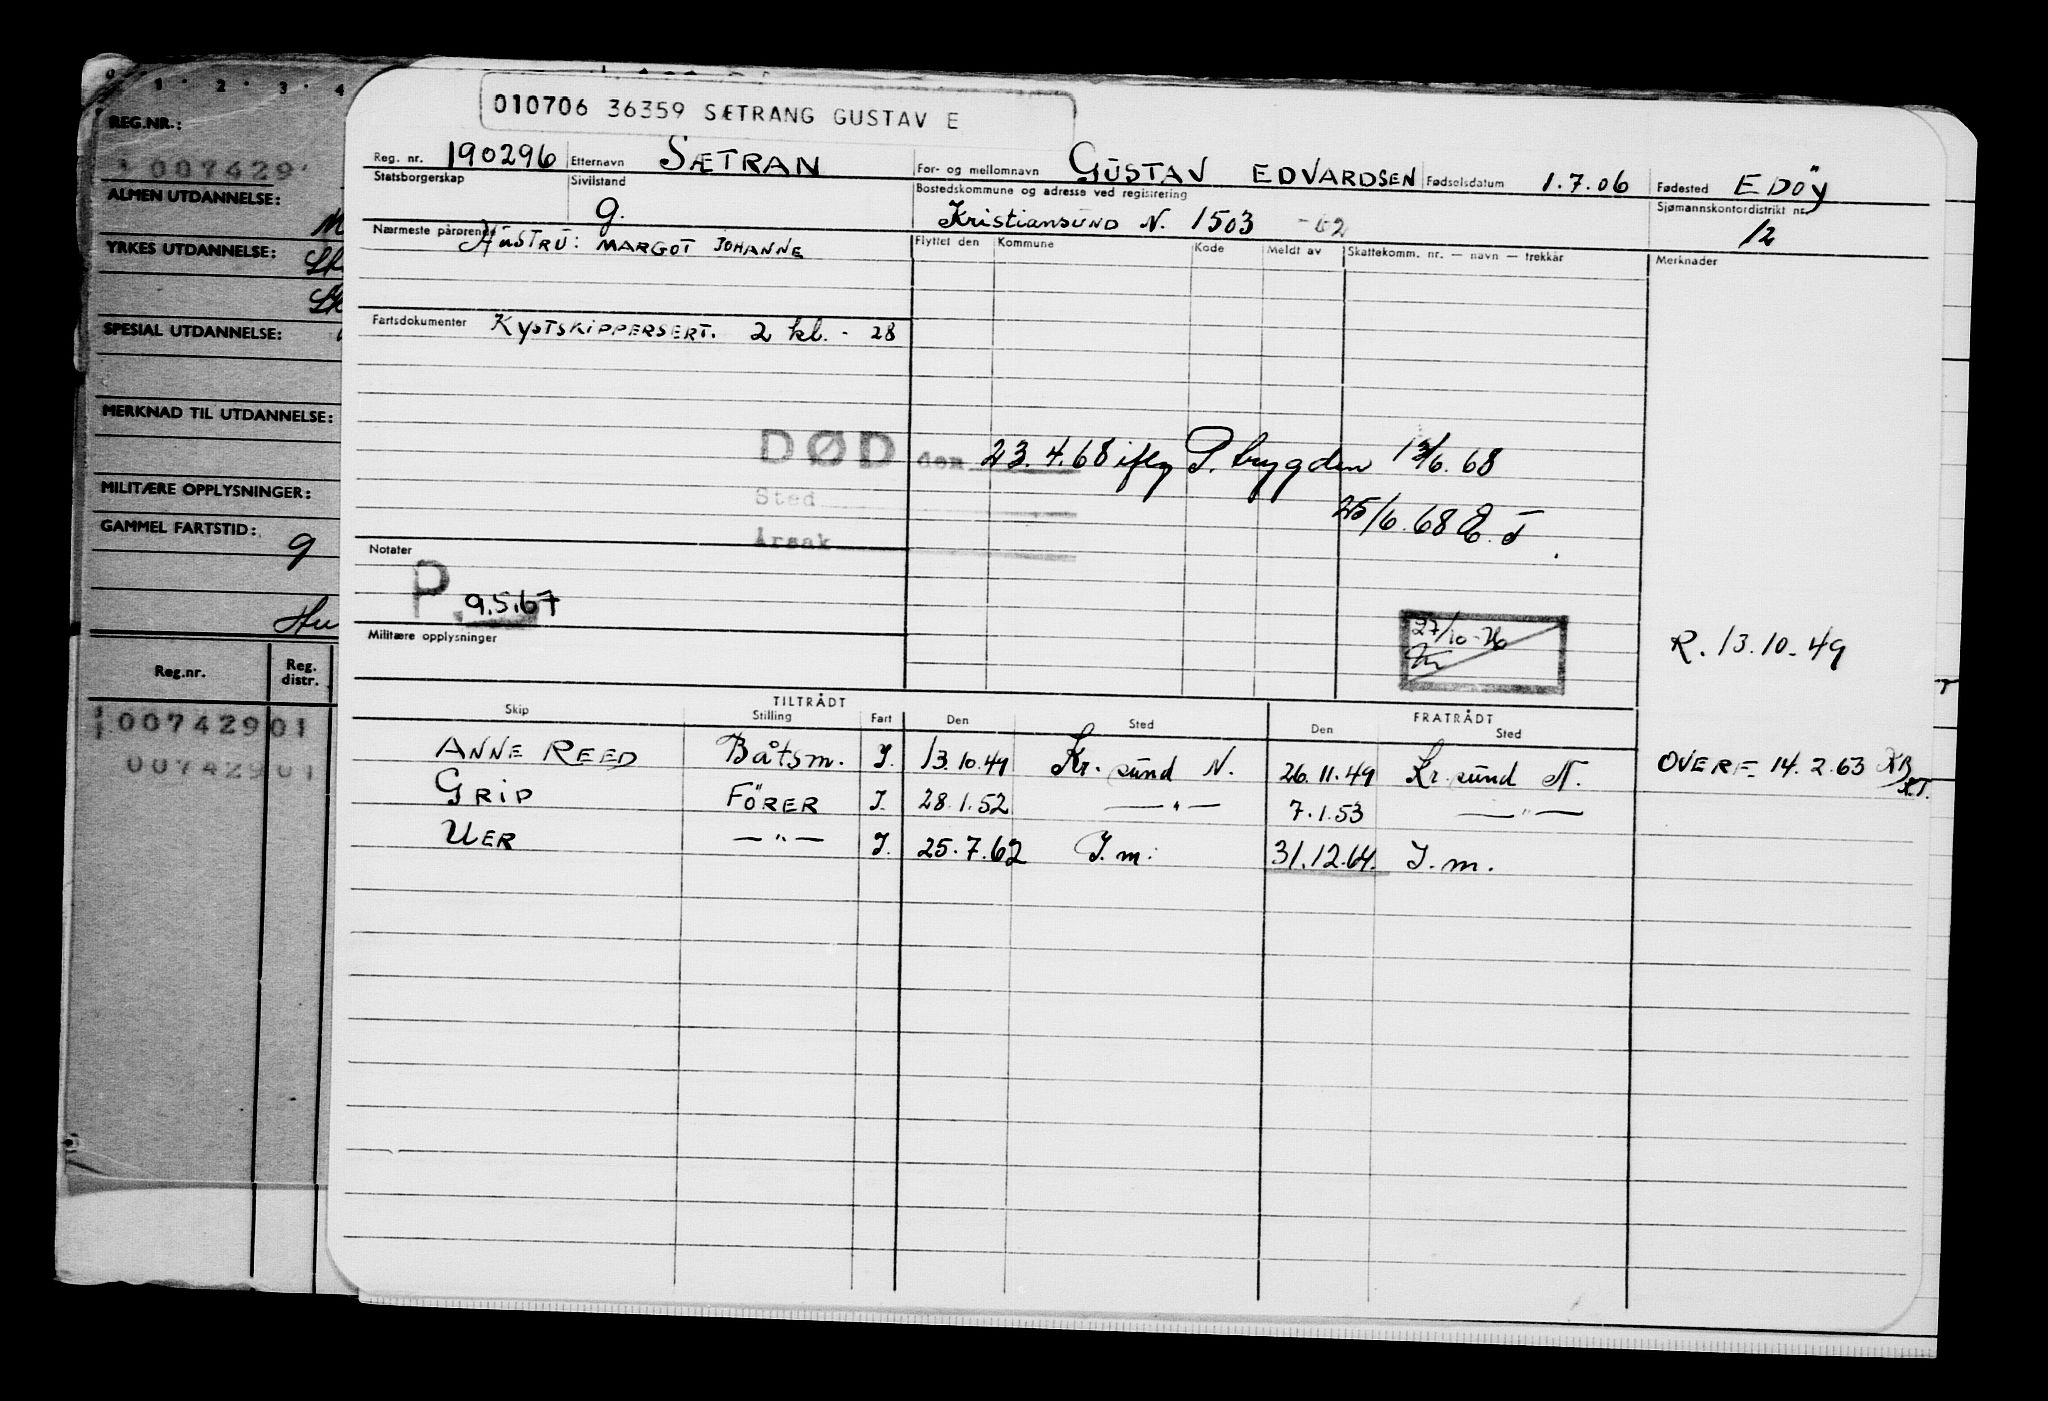 0 1 2 3 4
REG.NR.:
007429
ALMEN UTDANNELSE:
YRKES UTDANNELSE:
SPESIAL UTDANNELSE:
MERKNAD TIL UTDANNELSE:
MILITÆRE OPPLYSNINGER:
GAMMEL FARTSTID: g
Reg.nr. Reg. distr.
00742901
00742901
010706 36359 SÆTRANG GUSTAV E
Reg. nr. 190296 Etternavn SÆTRAN For- og mellomnavn GUSTAV EDVARDSEN Fødselsdatum 1.7.06 Fødested EDÖY
Statsborgerskap Sivilstand g. Bostedskommune og adresse ved registrering Kristiansund N. 1503 -62 Sjømannskontordistrikt nr. 12
Nærmeste pårørende HUSTRU: MARGOT JOHANNE Flyttet den Kommune Kode Meldt av Skattekomm. nr. — navn — trekkår Merknader
Fartsdokumenter KYSTSKIPPERSERT. 2 kl. - 28
DØD den 23.4.68 iflg P. trygden 13/6.68
Sted 25/6.68 E.T.
Årsak
Notater
P. 9.5.67
Militære opplysninger
27/10-76
R. 13.10.49
TILTRÅDT FRATRÅDT
Skip Stilling Fart Den Sted Den Sted
ANNE REED Båtsm. I. 13.10.49 Kr.sund N. 26.11.49 Kr.sund N. OVERF. 14.2.63
GRIP FÖRER I. 28.1.52 —"— 7.1.53 —"—
UER —"— I. 25.7.62 I.m. 31.12.64. I.m.